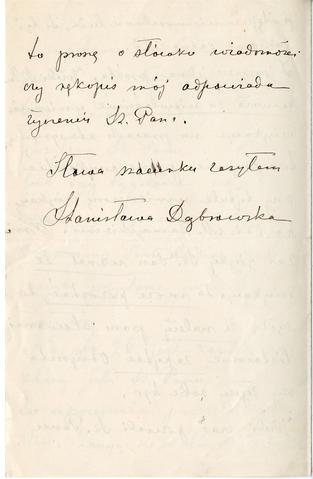 to proszę o słówko wiadomości
czy rękopis mój odpowiada
życzeniu Sz. Pani.
Słowa szacunku zasyłam
Stanisława Dąbrowska